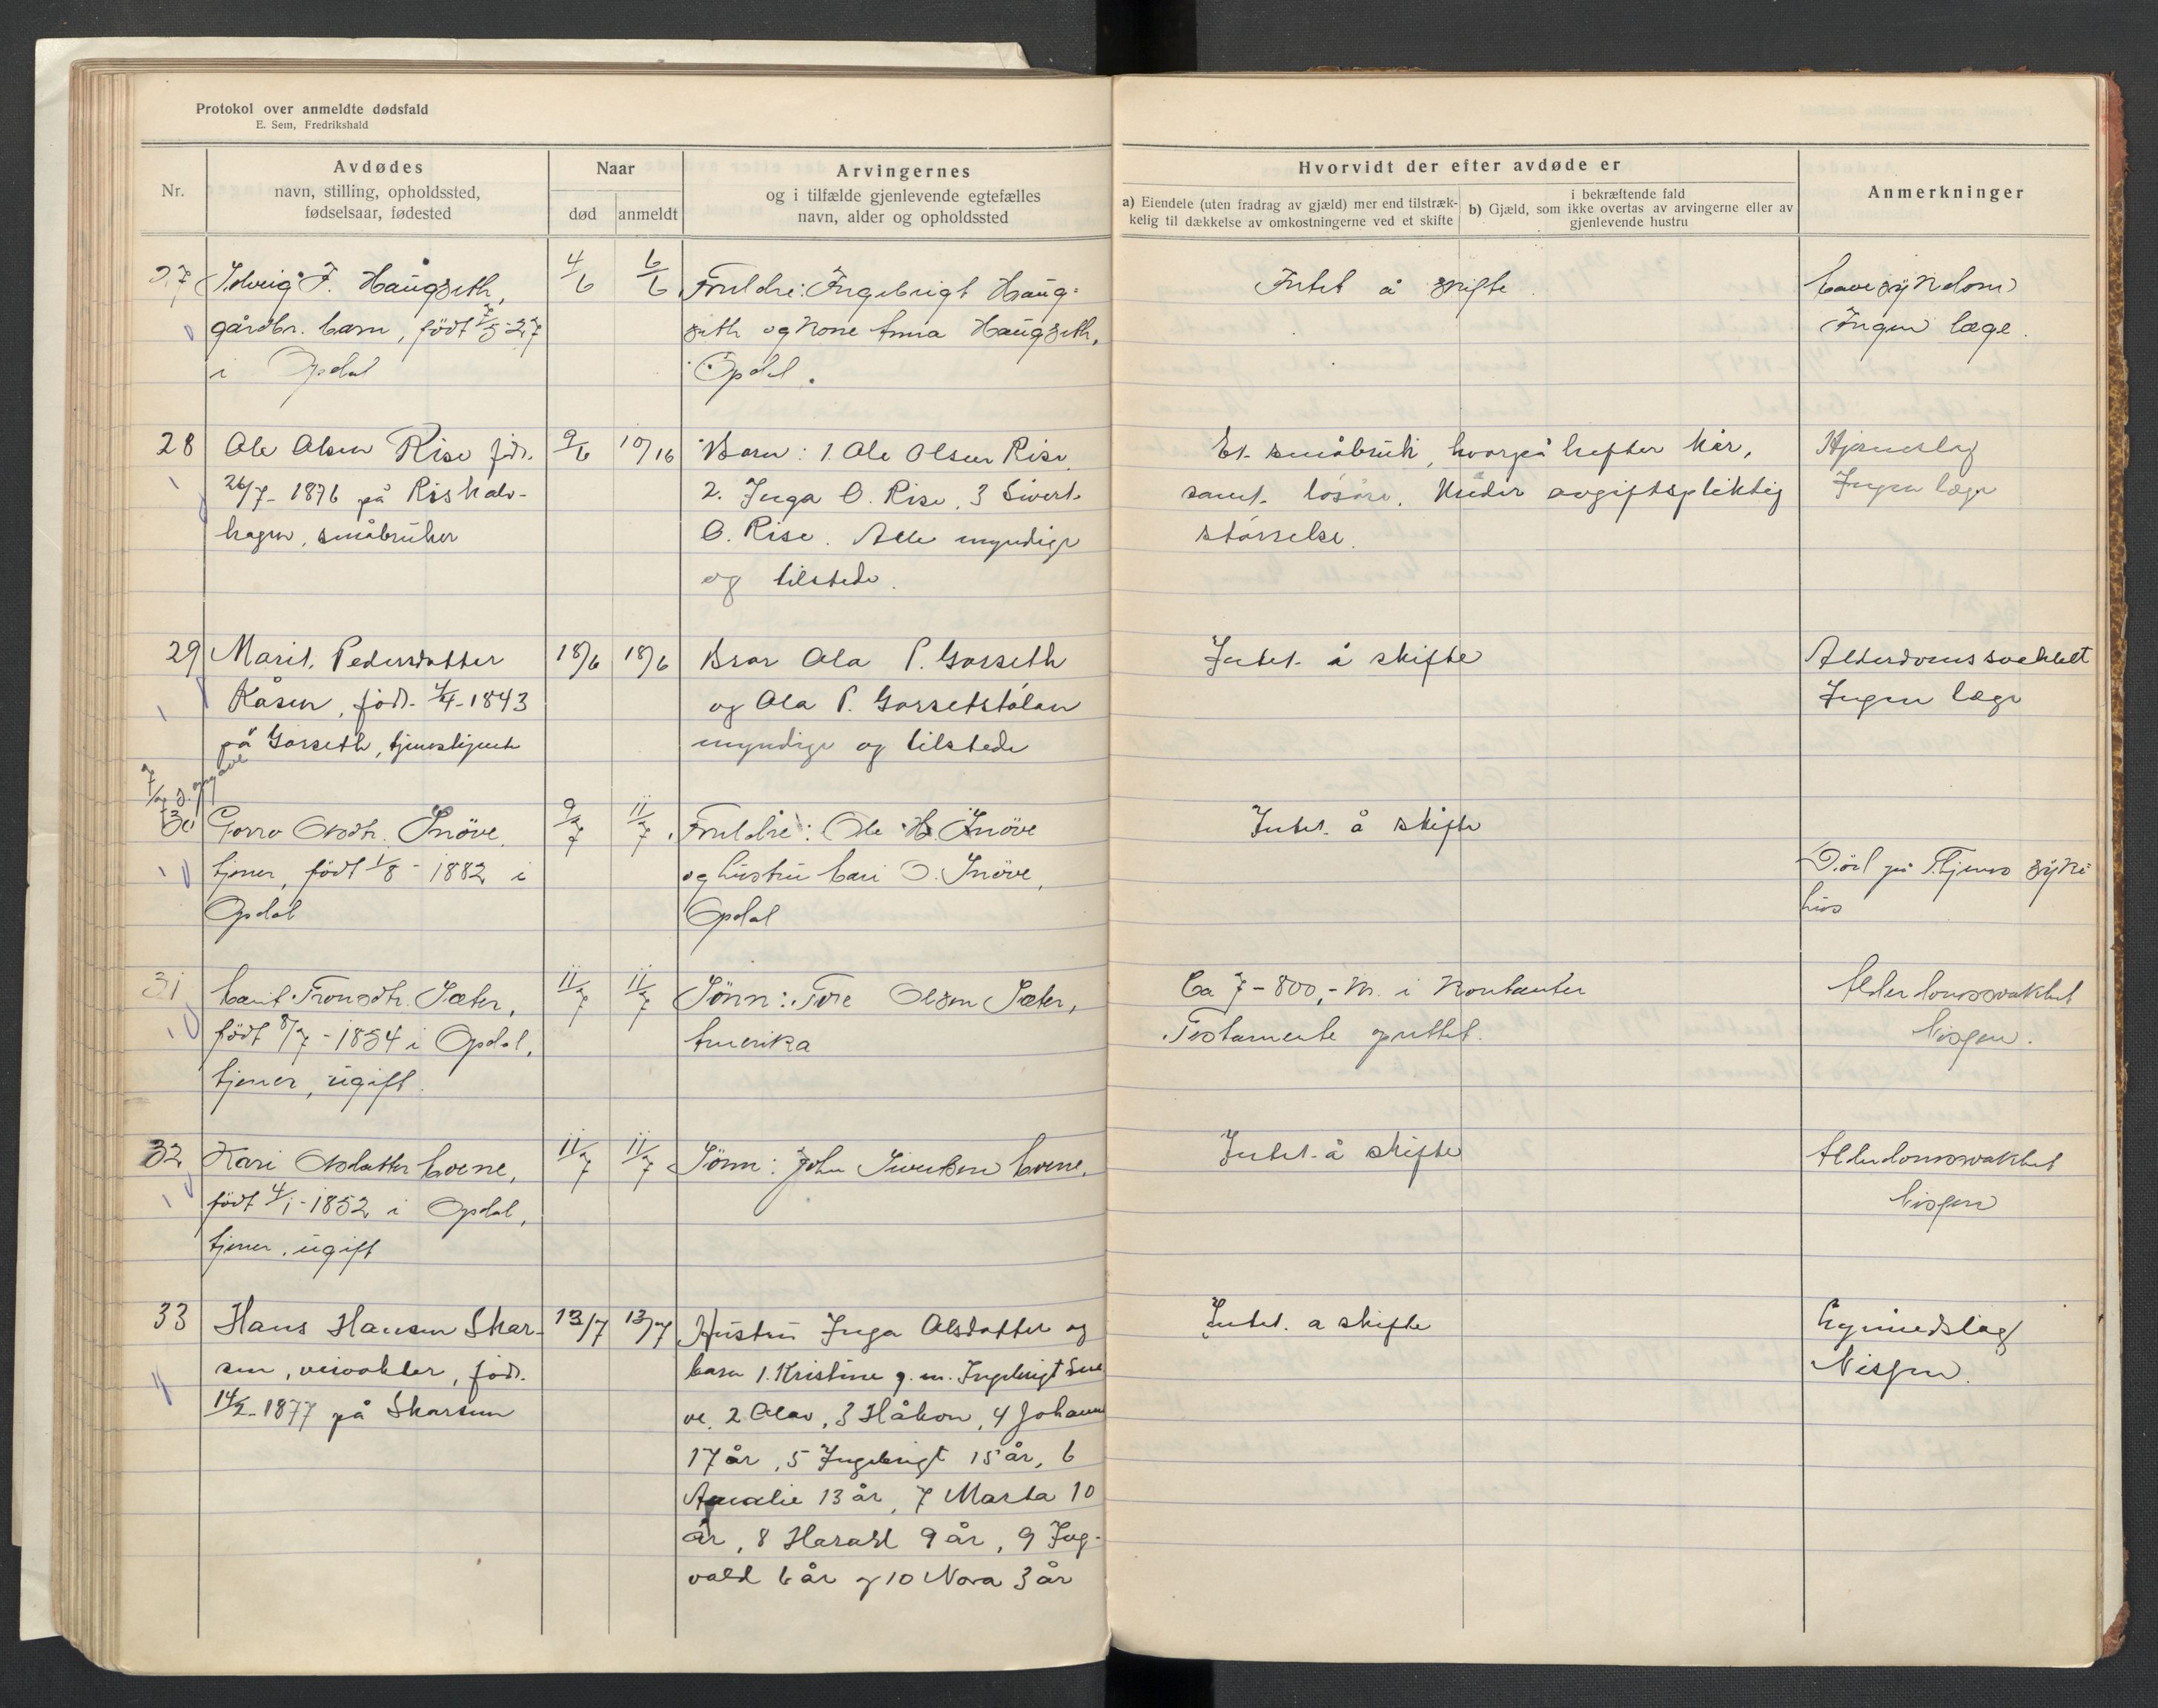 Protokol over anmeldte dødsfald
E. Sem, Fredrikshald
Nr.
Avdødes
navn, stilling, opholdssted,
fødselsaar, fødested
Naar
død
anmeldt
Arvingernes
og i tilfælde gjenlevende egtefælles
navn, alder og opholdssted
Hvorvidt der efter avdøde er
a) Eiendele (uten fradrag av gjæld) mer end tilstræk-
kelig til dækkelse av omkostningerne ved et skifte
i bekræftende fald
b) Gjæld, som ikke overtas av arvingerne eller av
gjenlevende hustru
Anmerkninger
27
Solveig I. Haugseth,
gårdbr. barn, født 5-27
i Opdal
4/6
6/6
Foreldre: Ingebrigt Haug-
seth og kone Anna Haugseth,
Opdal.
Intet å skifte
Ingen læge.
28
Ole Olsen Rise født
26/7-1876 på Riskalv-
hagen, småbruker
9/6
10/16
Barn: 1. Ole Olsen Rise
2. Inga O. Rise, 3 Sivert
O. Rise. Alle myndige
og tilstede.
Et småbruk, hvorpå hefter kår,
samt løsøre. Under avgiftspliktig
størrelse.
Hjerneslag
Ingen læge
29
Marit Pedersdatter
Kåsen, født 4/4-1843
på Gorseth, tjenestejente
18/6
18/6
Bror Ola P. Gorseth
og Ola P. Gorsetstølan
myndige og tilstede
Intet å skifte
Alderdomssvekket
Ingen læge
30
Olsdtr. Snöve,
tjener, født 1/8-1882 i
Opdal
9/7
11/7
Foreldre: Ole H. Snöve
og hustru Kari O. Snöve,
Opdal
Intet å skifte
Död på Thjems syke-
hus
31
Tronsdtr. Sæter,
født 8/7-1854 i Opdal,
tjener, ugift.
11/7
11/7
Sönn: Tore Olsen Sæter,
Amerika
Ca 7-800,- kr. i kontanter
Testamente oprettet.
Alderdomssvakhet
Nisjen.
32
Kari Olsdatter Loene,
født 4/1-1852 i Opdal,
tjener, ugift
11/7
11/7
Sönn: John Sivertsen Loene.
Intet å skifte
Alderdomssvakhet
Nisjen
33
Hans Hansen Skar-
sem, veivokter, født
14/2-1877 på Skarsem
13/7
13/7
Hustru Inga Olsdatter og
barn 1. Kristine g. m. Ingebrigt Snø
ve. 2. Olav, 3 Håkon, 4 Johanne
17 år, 5 Ingebrigt 15 år, 6
Amalie 13 år, 7 Marta 10
år, 8 Harald 9 år, 9 Ing-
vald 6 år og 10 Nora 3 år
Intet a skifte
Nisjen.